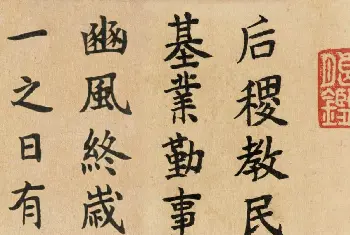 后稷教民
基業勤事
豳風終歳
一之日有